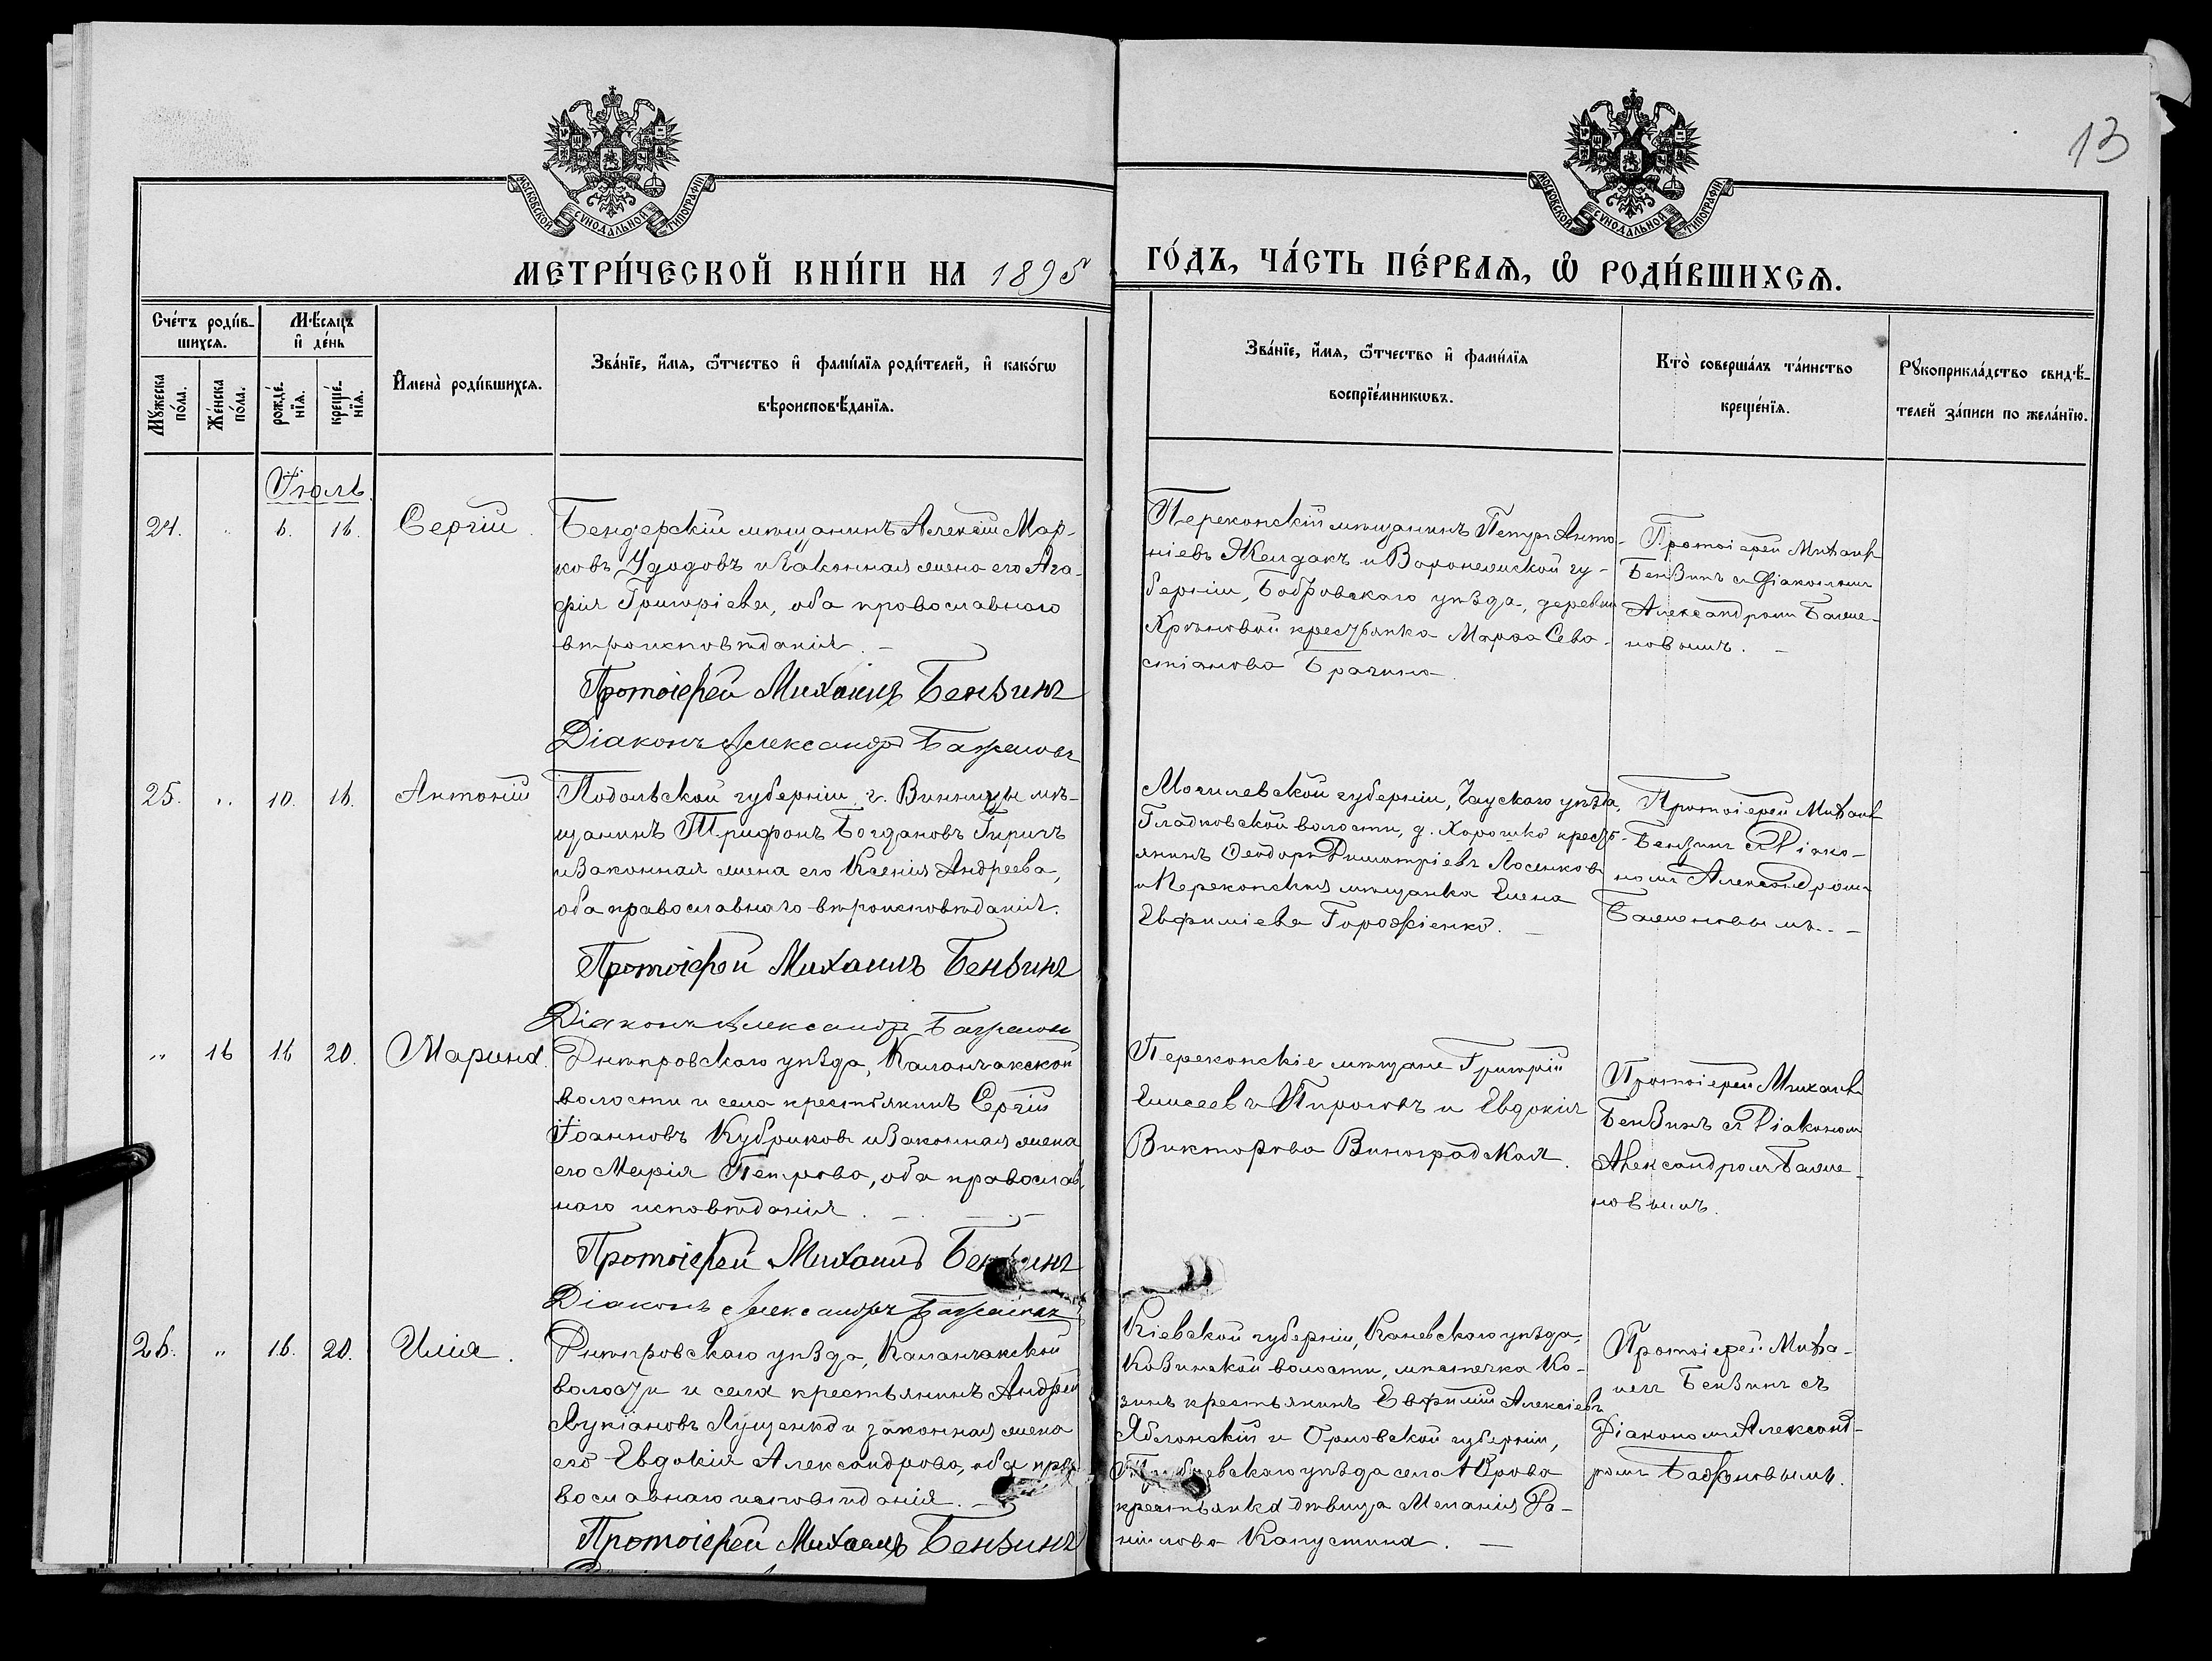 13
МОСКОВСКОЙ СУНОДАЛЬНОЙ ТИПОГРАФІИ
МОСКОВСКОЙ СУНОДАЛЬНОЙ ТИПОГРАФІИ
МЕТРИ́ЧЕСКОЙ КНИ́ГИ НА 1895 ГО́ДЪ, ЧА́СТЬ ПЕ́РВАѦ, Ѡ҆ РОДИ́ВШИХСѦ.
Сче́тъ роди́в-
шихсѧ.
Мꙋжеска
по́ла.
Же́нска
по́ла.
Мѣ́сѧцъ
и҆ де́нь
рожде́-
нїѧ.
креще́-
нїѧ.
И҆мена̀ роди́вшихсѧ.
Зва́нїе, и҆́мѧ, ѻ҆́тчество и҆ фамі́лїѧ роди́телей, и҆ како́гѡ
вѣроисповѣ́данїѧ.
Зва́нїе, и҆́мѧ, ѻ҆́тчество и҆ фамі́лїѧ
воспрїе́мникѡвъ.
Кто̀ соверша́лъ та́инство
креще́нїѧ.
Рꙋкоприкла́дство свидѣ́-
телей за́писи по жела́нїю.
Іюль.
24. „ 6. 16. Сергій.
Бендерскій мѣщанинъ Алексій Мар-
ковъ Удодовъ и законная жена его Ага-
фія Григоріева, оба православнаго
вѣроисповѣданія. –
Протоіерей Михаилъ Бензинъ
Діаконъ Александръ Баженовъ
Перекопскій мѣщанинъ Петръ Анто-
ніевъ Желдакъ и Воронежской гу-
берніи, Бобровскаго уѣзда, деревни
Хрѣновой крестьянка Марѳа Сева-
стіанова Брагина
Протоіерей Михаилъ
Бензинъ съ діакономъ
Александромъ Баже-
новымъ. –
25. „ 10. 16. Антоній
Подольской губерніи, г. Винницы мѣ-
щанинъ Трифонъ Богдановъ Гиричъ
и законная жена его Ксенія Андреева,
оба православнаго вѣроисповѣданія.
Протоіерей Михаилъ Бензинъ
Діаконъ Александръ Баженовъ
Могилевской губерніи, Чаускаго уѣзда,
Гладковской волости, д. Хорошко кресть-
янинъ Ѳеодоръ Димитріевъ Лосенковъ
и Перекопская мѣщанка Елена
Евфиміева Гордіенко. –
Протоіерей Михаилъ
Бензинъ съ Діако-
номъ Александромъ
Баженовымъ. –
„ 16 16 20. Марина.
Днѣпровскаго уѣзда, Каланчакской
волости и села крестьянинъ Сергій
Іоанновъ Кубриковъ и законная жена
его Марія Петрова, оба православ-
наго исповѣданія. –
Протоіерей Михаилъ Бензинъ
Діаконъ Александръ Баженовъ
Перекопскіе мѣщане Григорій
Елисеевъ Пироговъ и Евдокія
Викторова Виноградская.
Протоіерей Михаилъ
Бензинъ съ Діакономъ
Александромъ Баже-
новымъ.
26. „ 16. 20. Илія.
Днѣпровскаго уѣзда, Каланчакской
волости и села крестьянинъ Андрей
Лукіановъ Лущенко и законная жена
его Евдокія Александрова, оба пра-
вославнаго исповѣданія. –
Протоіерей Михаилъ Бензинъ
Кіевской губерніи, Каневскаго уѣзда,
Козинской волости, мѣстечка Ко-
зинъ крестьянинъ Евфимій Алексіевъ
Яблонскій и Орловской губерніи,
уѣзда села
крестьянка дѣвица Меланія Да-
ніилова Капустина. –
Протоіерей Миха-
илъ Бензинъ съ
Діакономъ Александ-
ромъ Баженовымъ.